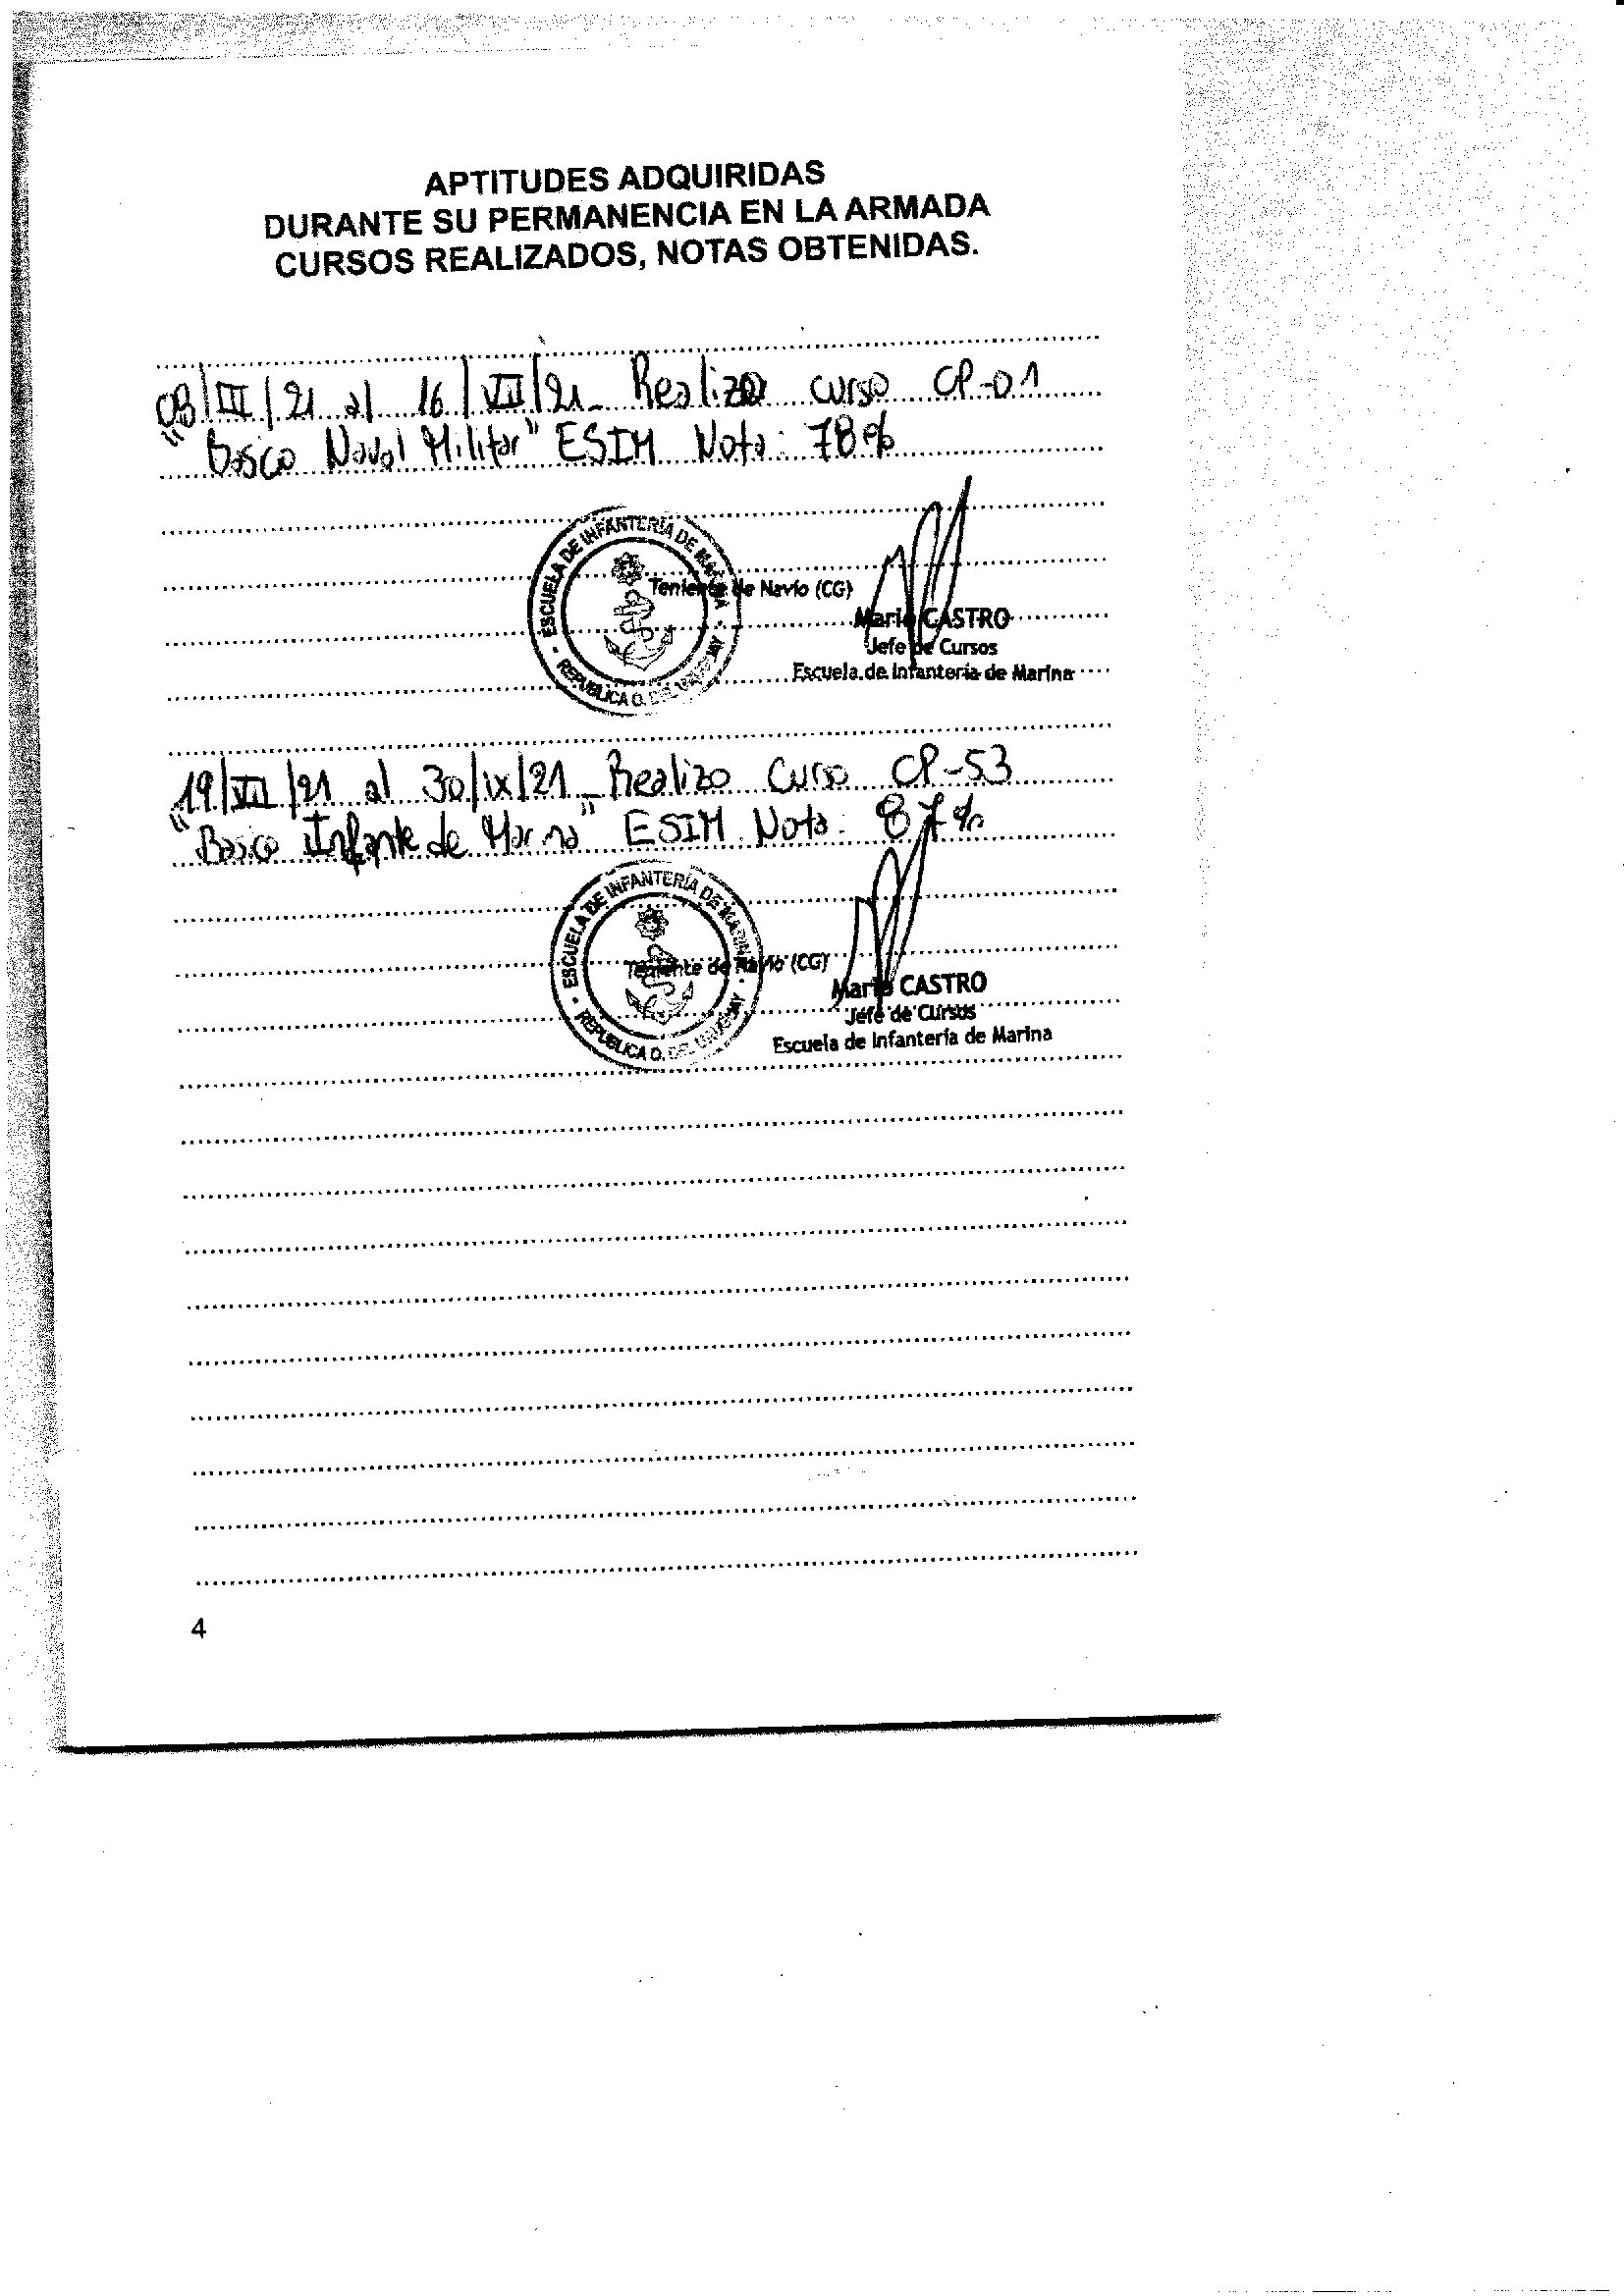 APTITUDES ADQUIRIDAS
DURANTE SU PERMANENCIA EN LA ARMADA
CURSOS REALIZADOS, NOTAS OBTENIDAS.
08/III/21 al 16/VII/21_ Realizo curso CP-01
"Basico Naval Militar" ESIM Nota: 78%
ESCUELA DE INFANTERÍA DE MARINA
REPUBLICA O. DEL URUGUAY
Teniente de Navío (CG)
Mario CASTRO
Jefe de Cursos
Escuela de Infantería de Marina
19/VII/21 al 30/IX/21_ Realizo Curso CP-53
"Basico Infante de Marina" ESIM Nota: 87%
ESCUELA DE INFANTERÍA DE MARINA
REPUBLICA O. DEL URUGUAY
Teniente de Navío (CG)
Mario CASTRO
Jefe de Cursos
Escuela de Infantería de Marina
4